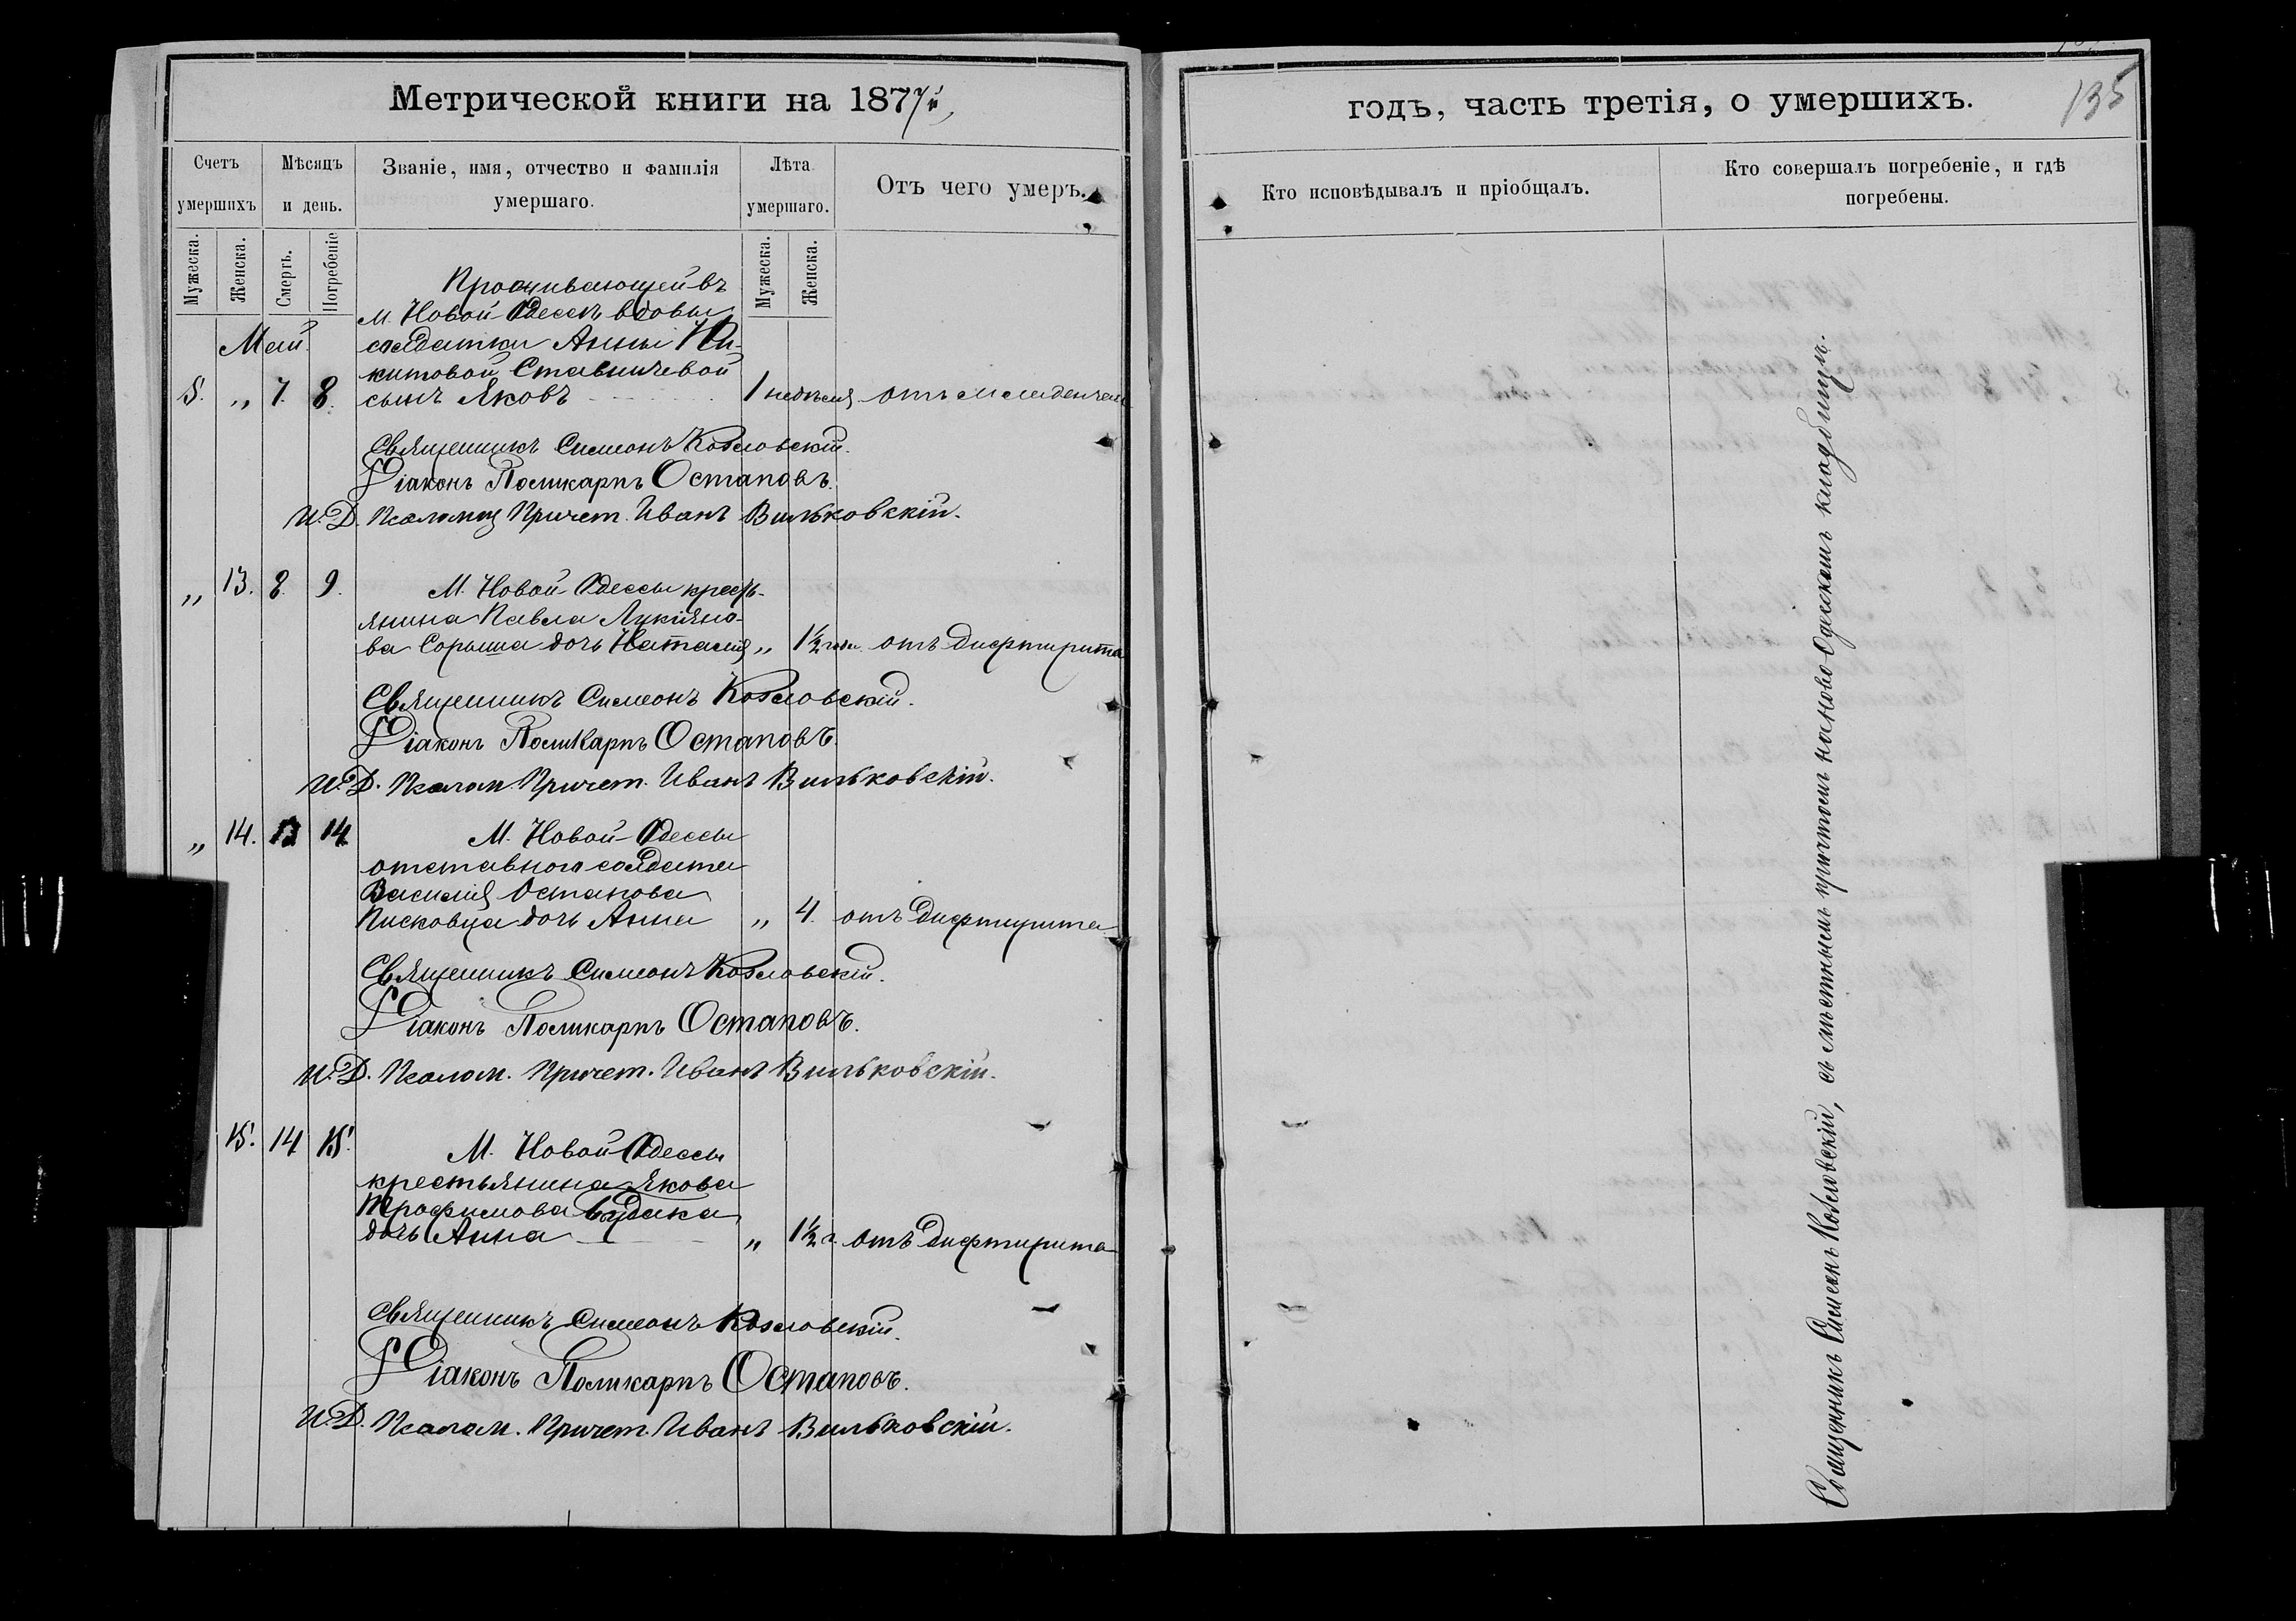 Метрической книги на 1877й
Счетъ умершихъ
Мѣсяцъ и день.
Званіе, имя, отчество и фамилія умершаго.
Лѣта умершаго.
Отъ чего умеръ.
Мужеска.
Женска.
Смерть.
Погребеніе
Мужеска.
Женска.
Проживающей въ
м. Новой Одессѣ вдовы
Май. солдатки Анны Ни-
китовой Ставничевой
5. „ 7. 8. сынъ Яковъ 1 недѣля отъ младенчес
Священникъ Симеонъ Козловскій.
Діаконъ Поликарпъ Остаповъ.
И. Д. Псаломщ Причет. Иванъ Вильковскій.
„ 13. 8. 9. М. Новой Одессы кресть-
янина Павла Лукіяно-
ва Сорыша дочь Наталія „ 1½ года отъ дифтирита
Священникъ Симеонъ Козловскій.
Діаконъ Поликарпъ Остаповъ.
И. Д. Псалом. Причет. Иванъ Вильковскій.
„ 14. 13 14 М. Новой Одессы
отставного солдата
Василія Остапова
Писковца дочь Анна „ 4. отъ дифтирита
Священникъ Симеонъ Козловскій.
Діаконъ Поликарпъ Остаповъ.
И. Д. Псалом. Причет. Иванъ Вильковскій.
15. 14 15. М. Новой Одессы
крестьянина Якова
Трофимова
дочь Анна „ 1½ г. отъ дифтирита
Священникъ Симеонъ Козловскій.
Діаконъ Поликарпъ Остаповъ.
И. Д. Псалом. Причет. Иванъ Вильковскій.
годъ, часть третія, о умершихъ.
135
Кто исповѣдывалъ и пріобщалъ.
Кто совершалъ погребеніе, и гдѣ погребены.
Священникъ Симеонъ Козловскій, съ мѣстнымъ причтомъ на ново-Одесскомъ кладбищѣ.